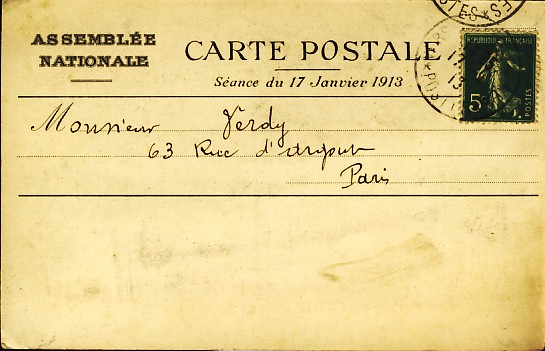 ASSEMBLÉE
NATIONALE
CARTE POSTALE
Séance du 17 Janvier 1913
RÉPUBLIQUE FRANÇAISE
5
POSTES
Monsieur Verdy
63 Rue d'
Paris